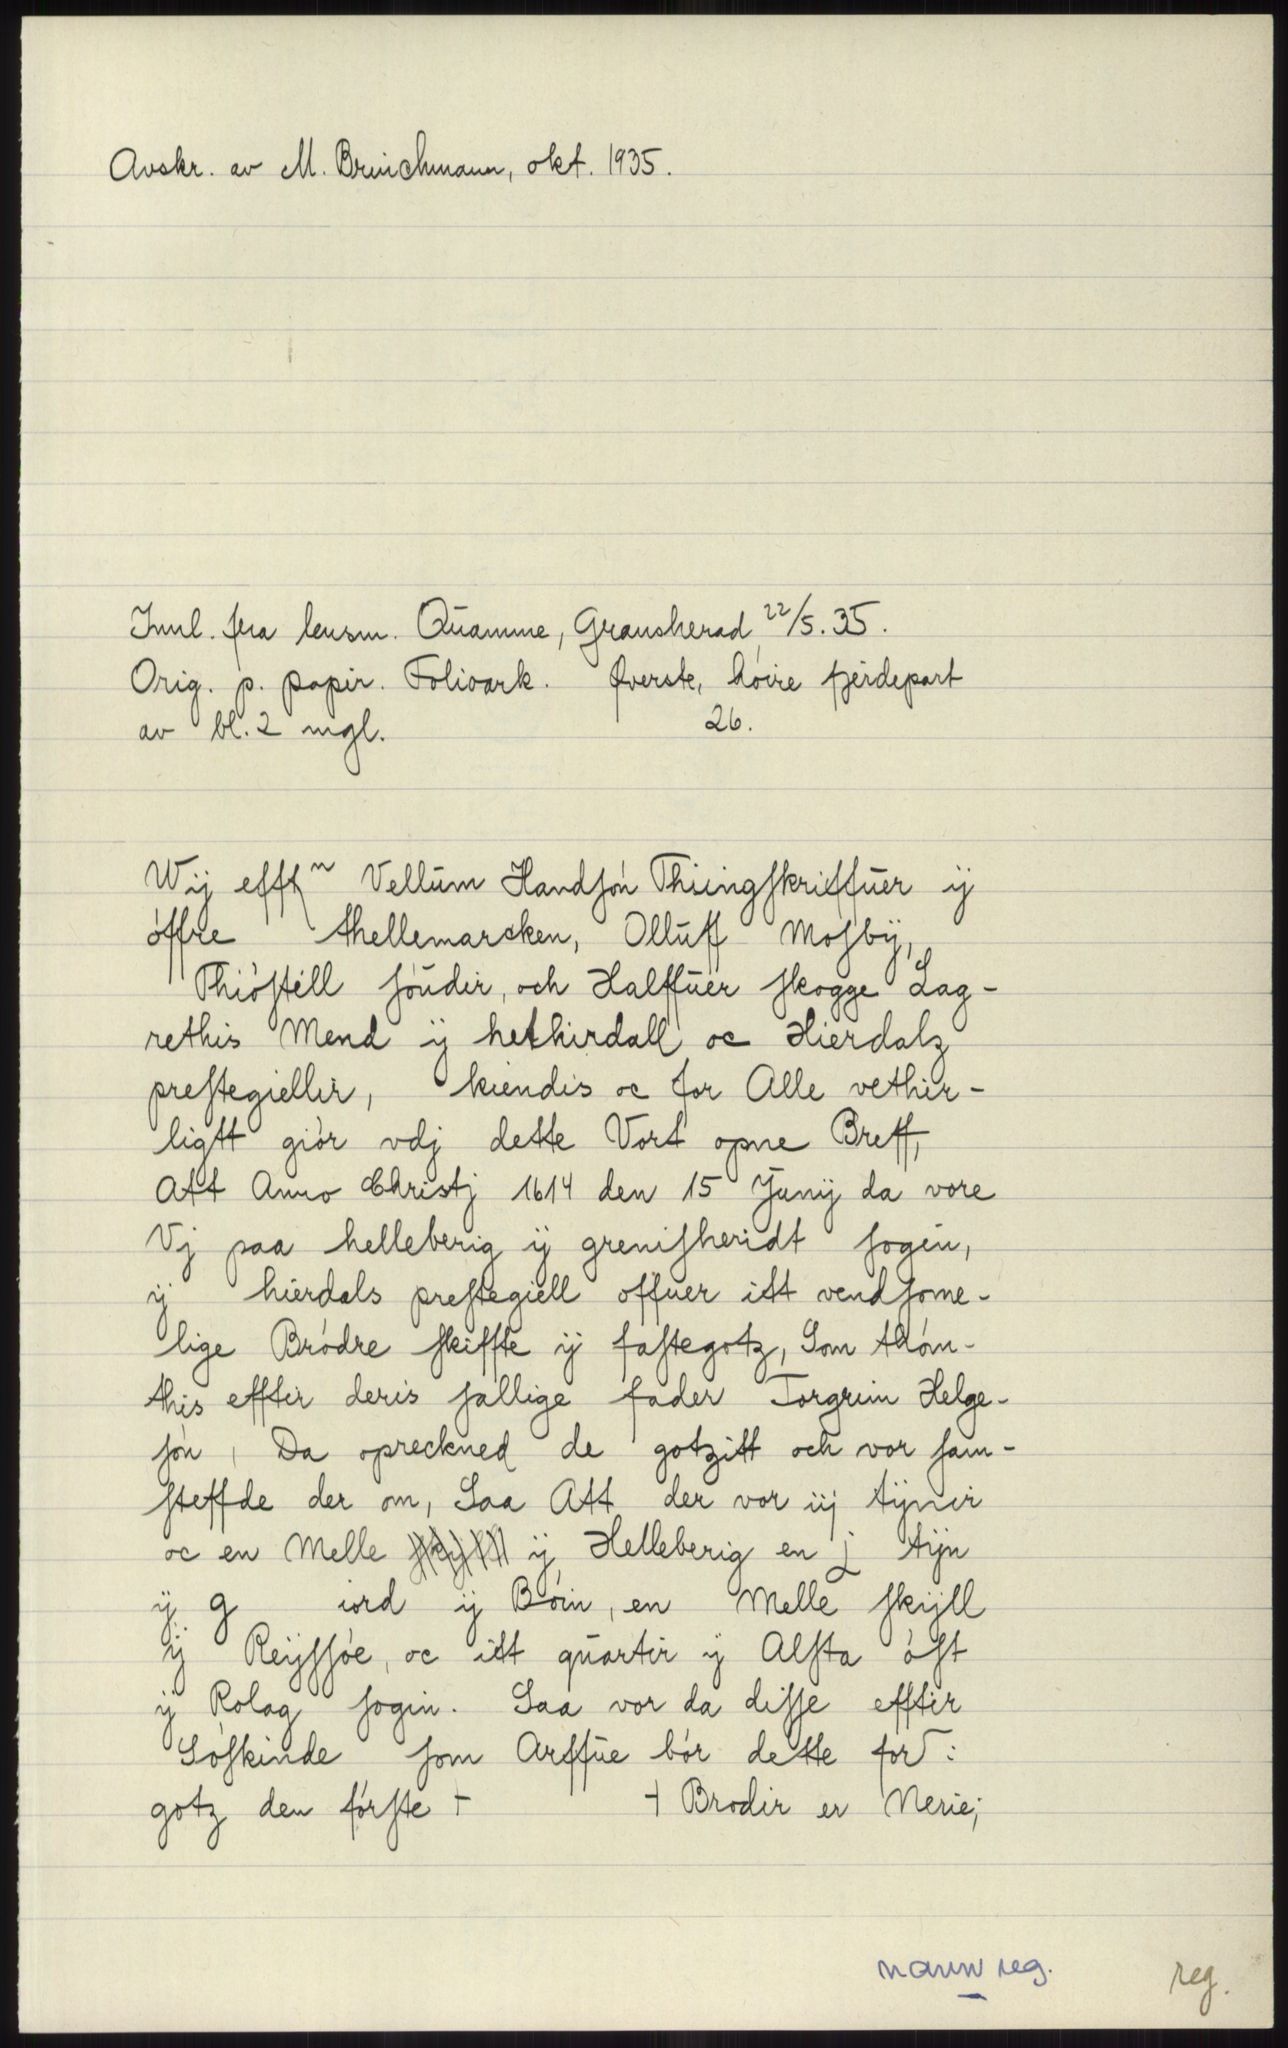 Avskr. av M. Brinchmann, okt. 1935.
Innl. fra lensm. Quamme, Gransherad 22/5. 35.
Orig. p. papir. Folioark. Øverste, høire fjerdepart
av bl. 2 mgl.
26.
Wij efftn Vellum Handsón Thiingskriffuer ÿ
óffre thellemarcken, Olluff Mosbÿ,
Thióstéll sóudir, och Halffuer skogge Lag-
rethis Mend ÿ hethirdall oc Hierdalz
prestegiellir, kiendis oc for Alle vethir-
ligtt giór vdj dette Vort opne Breff,
Att Anno Christj 1614 den 15 Junij da vore
Vj paa helleberig ÿ grenisheridt sogen,
ÿ hierdals prestegiell offuer itt vendsome-
lige Bródre skiffte ÿ fastegotz, Som thóm-
this efftir deris sallige fader Torgrim Helge-
són, Da opreckned de gotzitt och vor sam-
steffde der om, Saa Att der vor iij tÿnir
oc en Melle ÿ Helleberig en j tÿn
ÿ g iord ÿ Bóin, en Melle skÿll
ÿ Reÿssóe, oc itt quartir ÿ Alsta óst
ÿ Rolag sogin. Saa vor da disse efftir
Sóskinde som Arffue bór dette for:
gotz den fórste + + Brodir er Nerie;
navnreg.
reg.